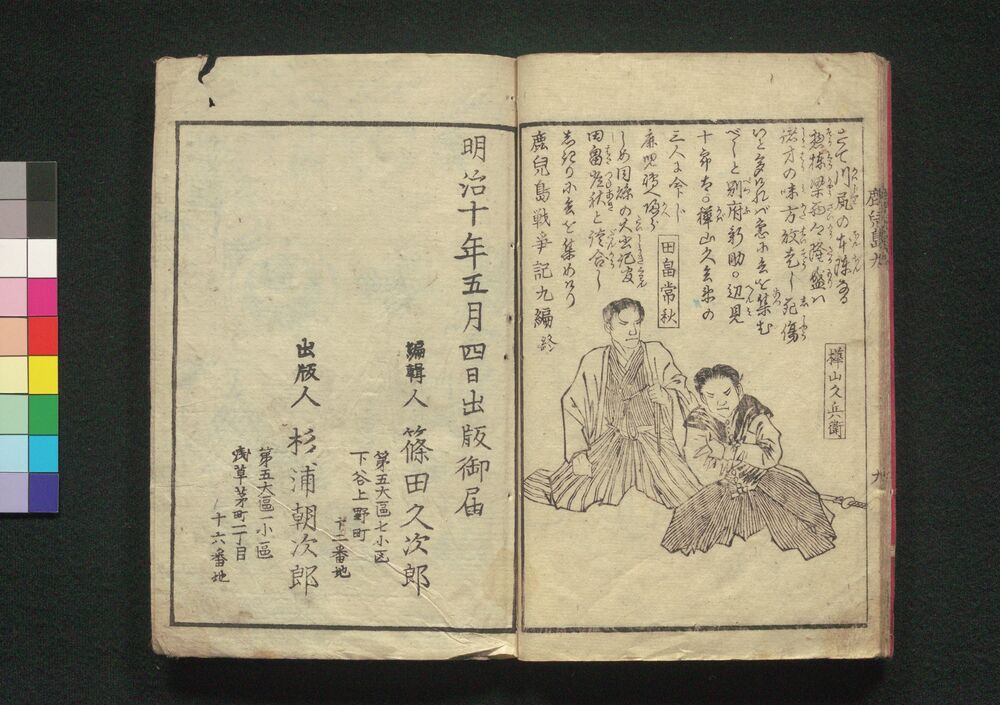 さて川尻の本陣なる
惣棟梁西郷隆盛ハ
諸方の味方放走し死傷
いと多けれバ急に兵を集む
べしと別府新助辺見
十郎太樺山久兵衛の
三人に令し
鹿児嶋へ帰り
しめ同縣の大書記官
田畠常秋と謀合し
しきりに兵を集めけり
鹿兒島戦争記九編終
田畠常秋
樺山久兵衛
九
明治十年五月四日出版御届
編輯人 篠田久次郎
第五大區七小区
下谷上野町
十二番地
出版人 杉浦朝次郎
第五大區一小區
浅草茅町二丁目
十六番地